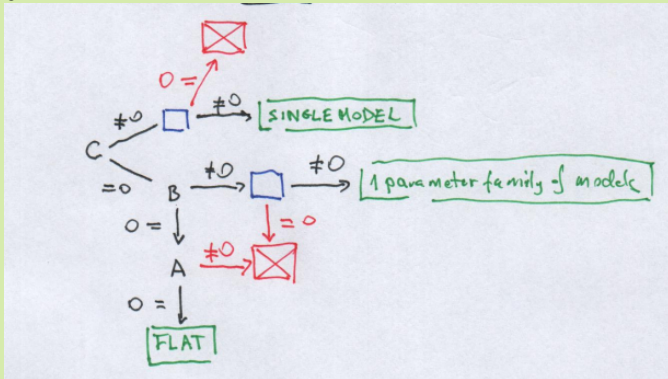 0 =
≠0
≠0
SINGLE MODEL
C
=0
B
≠0
≠0
1 parameter family of models
0 =
= 0
A
≠0
0 =
FLAT